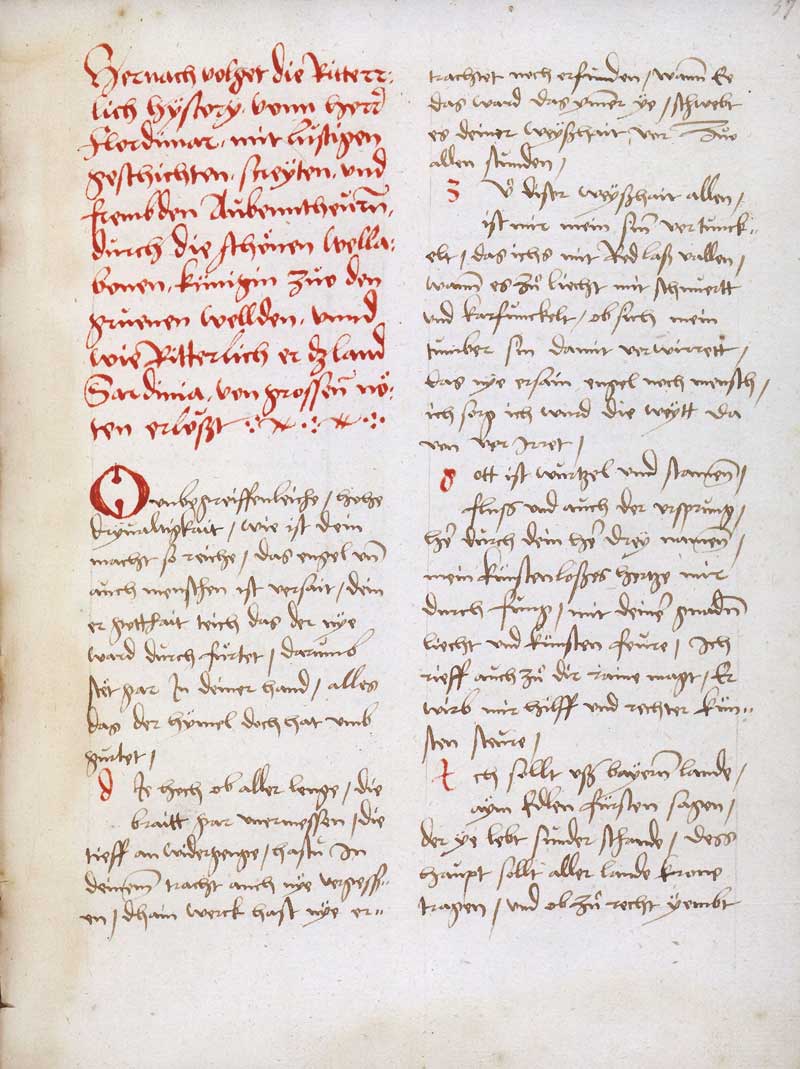 Hernach volget die Ritterr:
lich hystory, vonn herr
Flordimar, mit lustigen
geschichten, streyten, und
frembden Aubenntheurn̄,
durch die schönen Wella-
bonen, künigin zuo den
gruenen wellden, unnd
wie Ritterlich er dz land
Sardinia, von grossen̄ nö-
ten erlößt
O unbegreiffenleiche, hohe
dryualtigkait, wie ist dein
macht so reiche, das engel un̄
auch menschen ist versait, dein
er gotthait teich das der nye
ward durch fürtet, darumb
stet gar In deiner hand, alles
das der hymel doch hat umb
gurtet,
d Ie hoch ob aller lenge, die
braitt gar unermessen, die
tieff an widergenge, hastu In
deinem̄ tracht auch nye vergess-
en, dhain werck hast nye er-
trachtet noch erfunden, wann̄ Ee
das ward das ym̄er ye, schwebt
es deiner weyßhait vor Zuo
allen stunden,
Z ů diser weyßhait allen,
ist mir mein sin̄ vertunck-
elt, das ichs mit Red laß vallen,
wann̄ es zů liecht mit schnuertt
und karfunckelt, ob sich mein
tumber sin damit verwirrett,
das nye ersain engel noch mensch,
ich sorg ich wurd die weytt da
von verirret,
g ott ist wurtzel und stamen̄,
fluss und auch der ursprung,
he͛ durch dein he͛ drey namen̄,
mein künstenloßes hertze mir
durch fung, mit deine͛ gnadn̄
liecht und künsten feure, Ich
rieff auch zů dir raine magt, Er
wirb mir hilff und rechter kün-
sten steure,
I ch sollt uß bayern̄ lande,
aym Edlen fürsten sagen,
der ye lebt sunder schande, dess
haupt sollt aller lande krone
tragen, und ob zů recht yembt